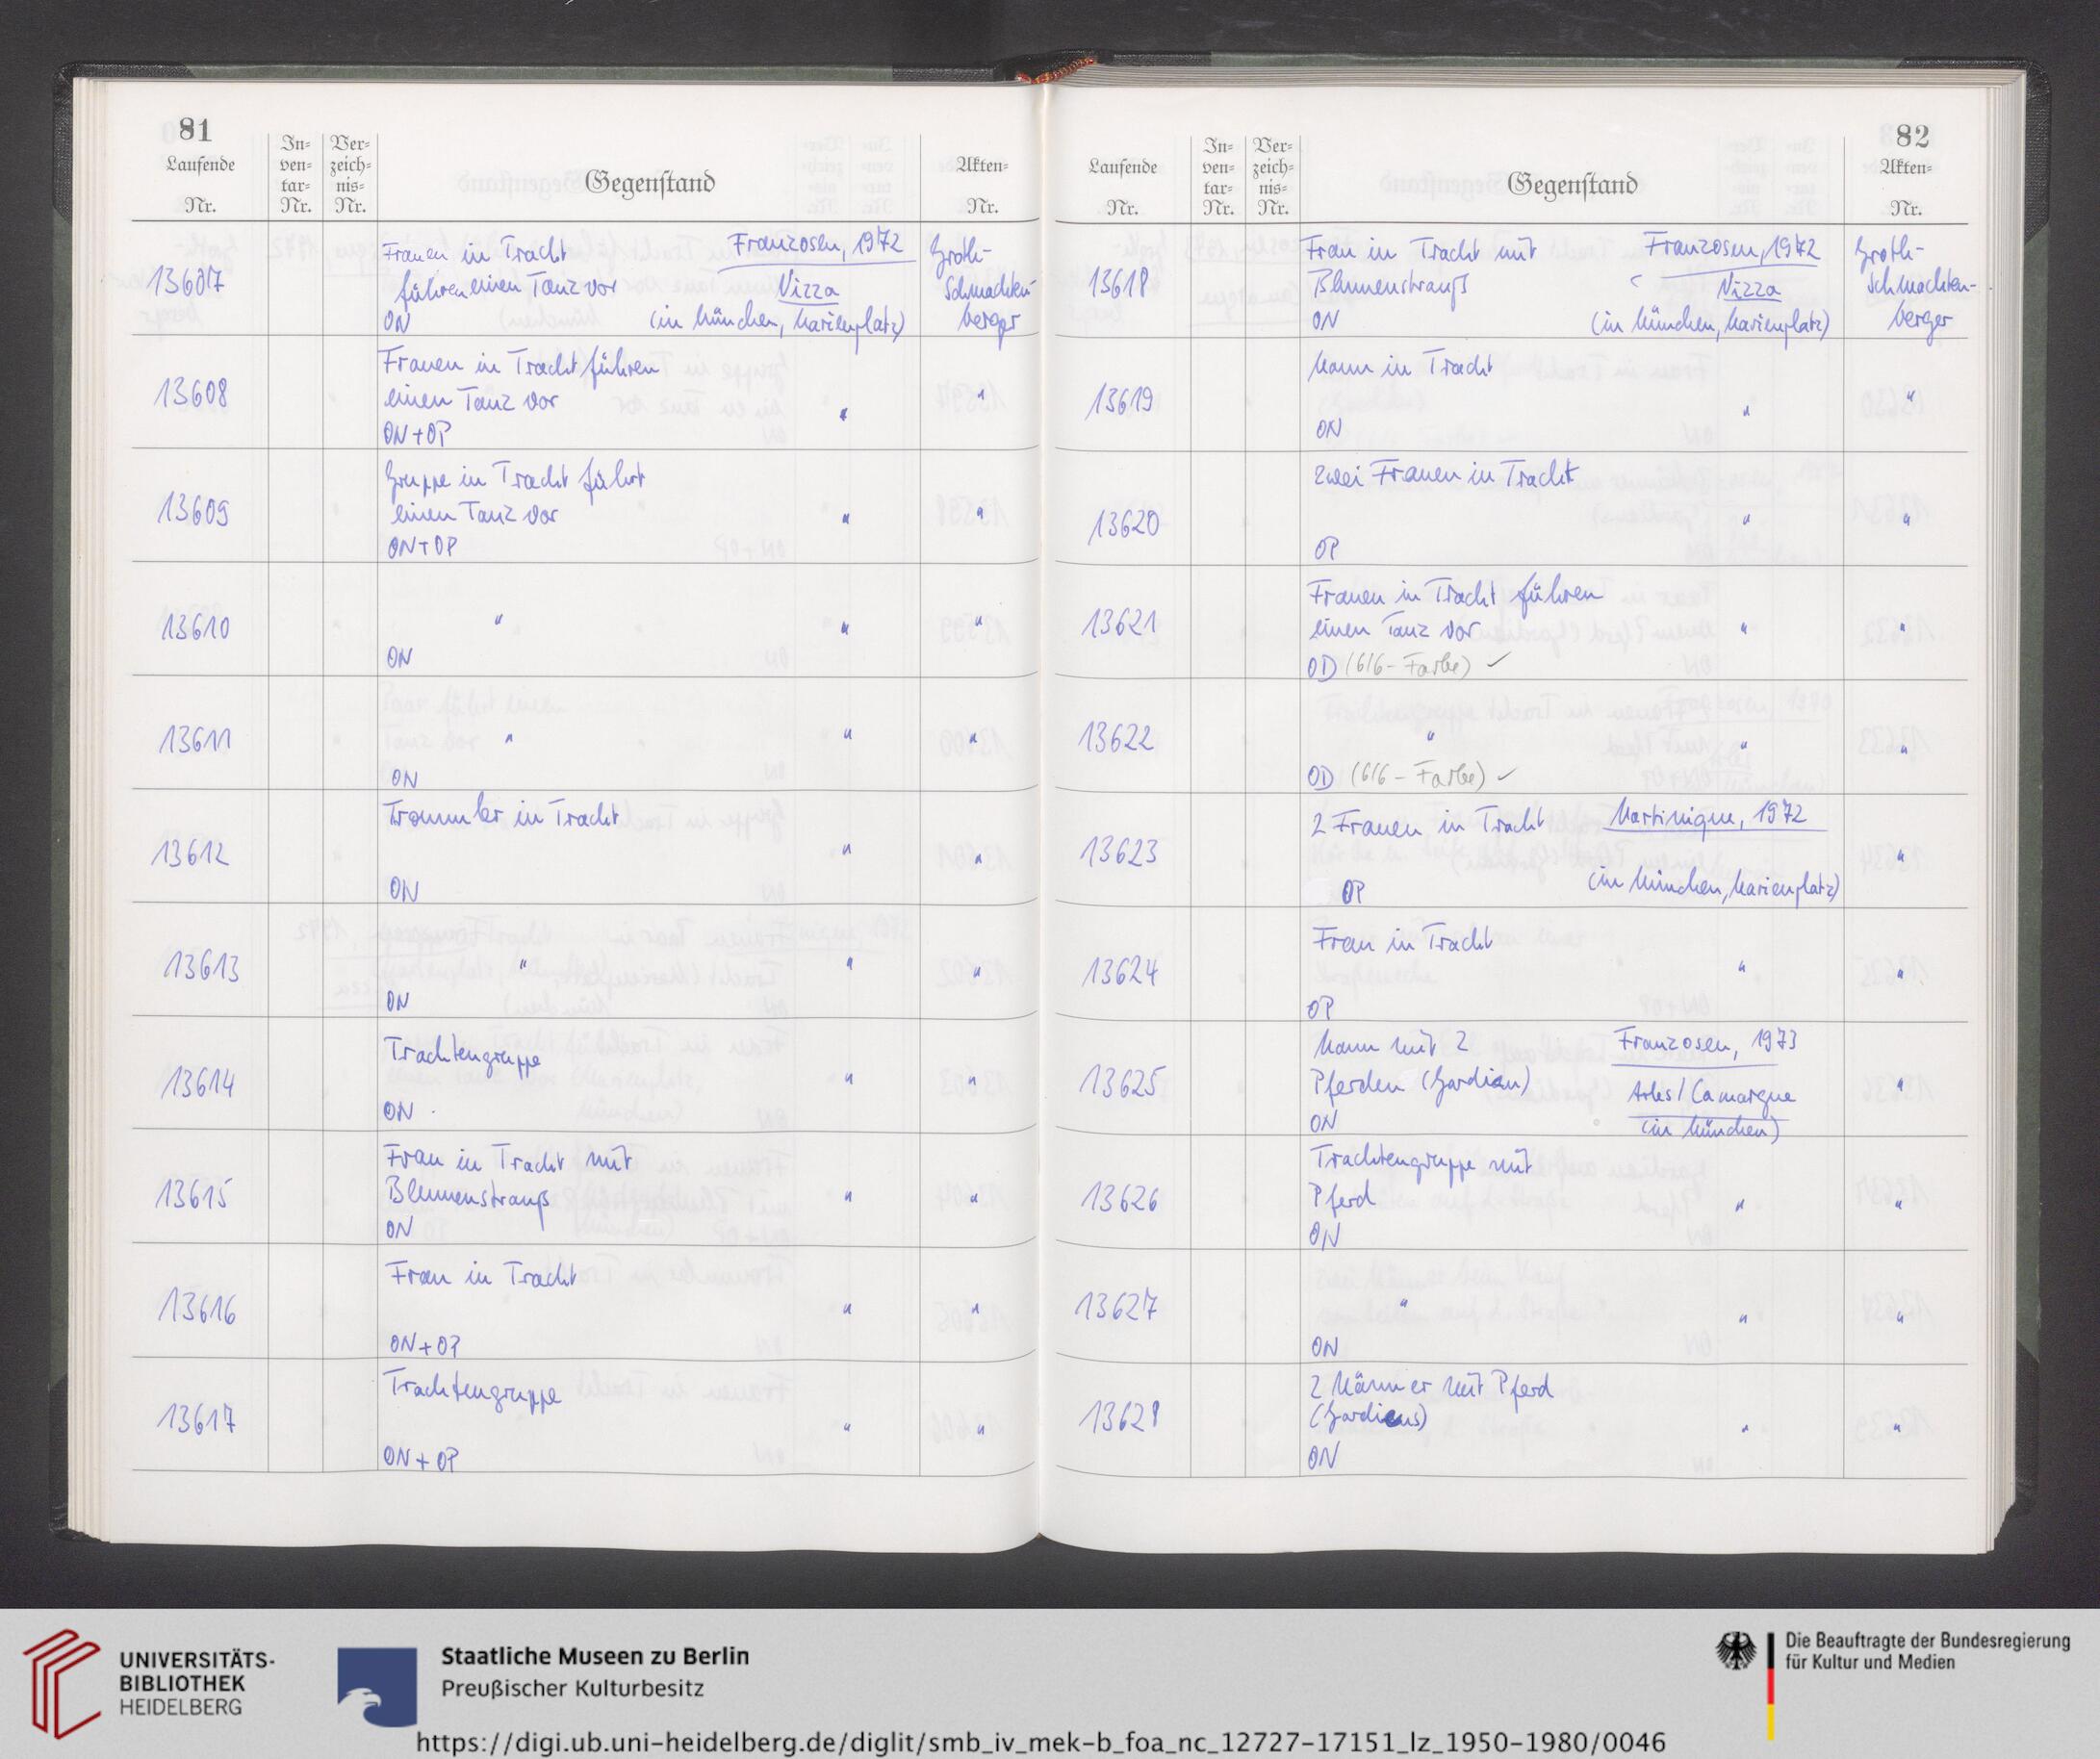 81
Laufende Nr.
In-ven-tar-Nr.
Ver-zeich-nis-Nr.
Gegenstand
Akten-Nr.
13607
Frauen in Tracht
Franzosen, 1972
führen einen Tanz vor
Nizza
ON
(in München, Marienplatz)
Groth-
Schmachten-
berger
13608
Frauen in Tracht führen
einen Tanz vor
"
"
ON + OP
13609
Gruppe in Tracht führt
einen Tanz vor
"
"
ON + OP
13610
"
"
"
ON
13611
"
"
"
ON
13612
Trommler in Tracht
"
"
ON
13613
"
"
"
ON
13614
Trachtengruppe
"
"
ON
13615
Frau in Tracht mit
Blumenstrauß
"
"
ON
13616
Frau in Tracht
"
"
ON + OP
13617
Trachtengruppe
"
"
ON + OP
82
Laufende Nr.
In-ven-tar-Nr.
Ver-zeich-nis-Nr.
Gegenstand
Akten-Nr.
13618
Frau in Tracht mit
Franzosen, 1972
Blumenstrauß
Nizza
ON
(in München, Marienplatz)
Groth-
Schmachten-
berger
13619
Mann in Tracht
"
"
ON
13620
Zwei Frauen in Tracht
"
"
OP
13621
Frauen in Tracht führen
einen Tanz vor
"
"
OD (6/6 - Farbe) ✓
13622
"
"
"
OD (6/6 - Farbe) ✓
13623
2 Frauen in Tracht
Martinique, 1972
"
OP
(in München, Marienplatz)
13624
Frau in Tracht
"
"
OP
13625
Mann mit 2
Franzosen, 1973
Pferden (Gardian)
Arles / Camargue
"
ON
(in München)
13626
Trachtengruppe mit
Pferd
"
"
ON
13627
"
"
"
ON
13628
2 Männer mit Pferd
(Gardiens)
"
"
ON
UNIVERSITÄTS-
BIBLIOTHEK
HEIDELBERG
Staatliche Museen zu Berlin
Preußischer Kulturbesitz
Die Beauftragte der Bundesregierung
für Kultur und Medien
https://digi.ub.uni-heidelberg.de/diglit/smb_iv_mek-b_foa_nc_12727-17151_lz_1950-1980/0046